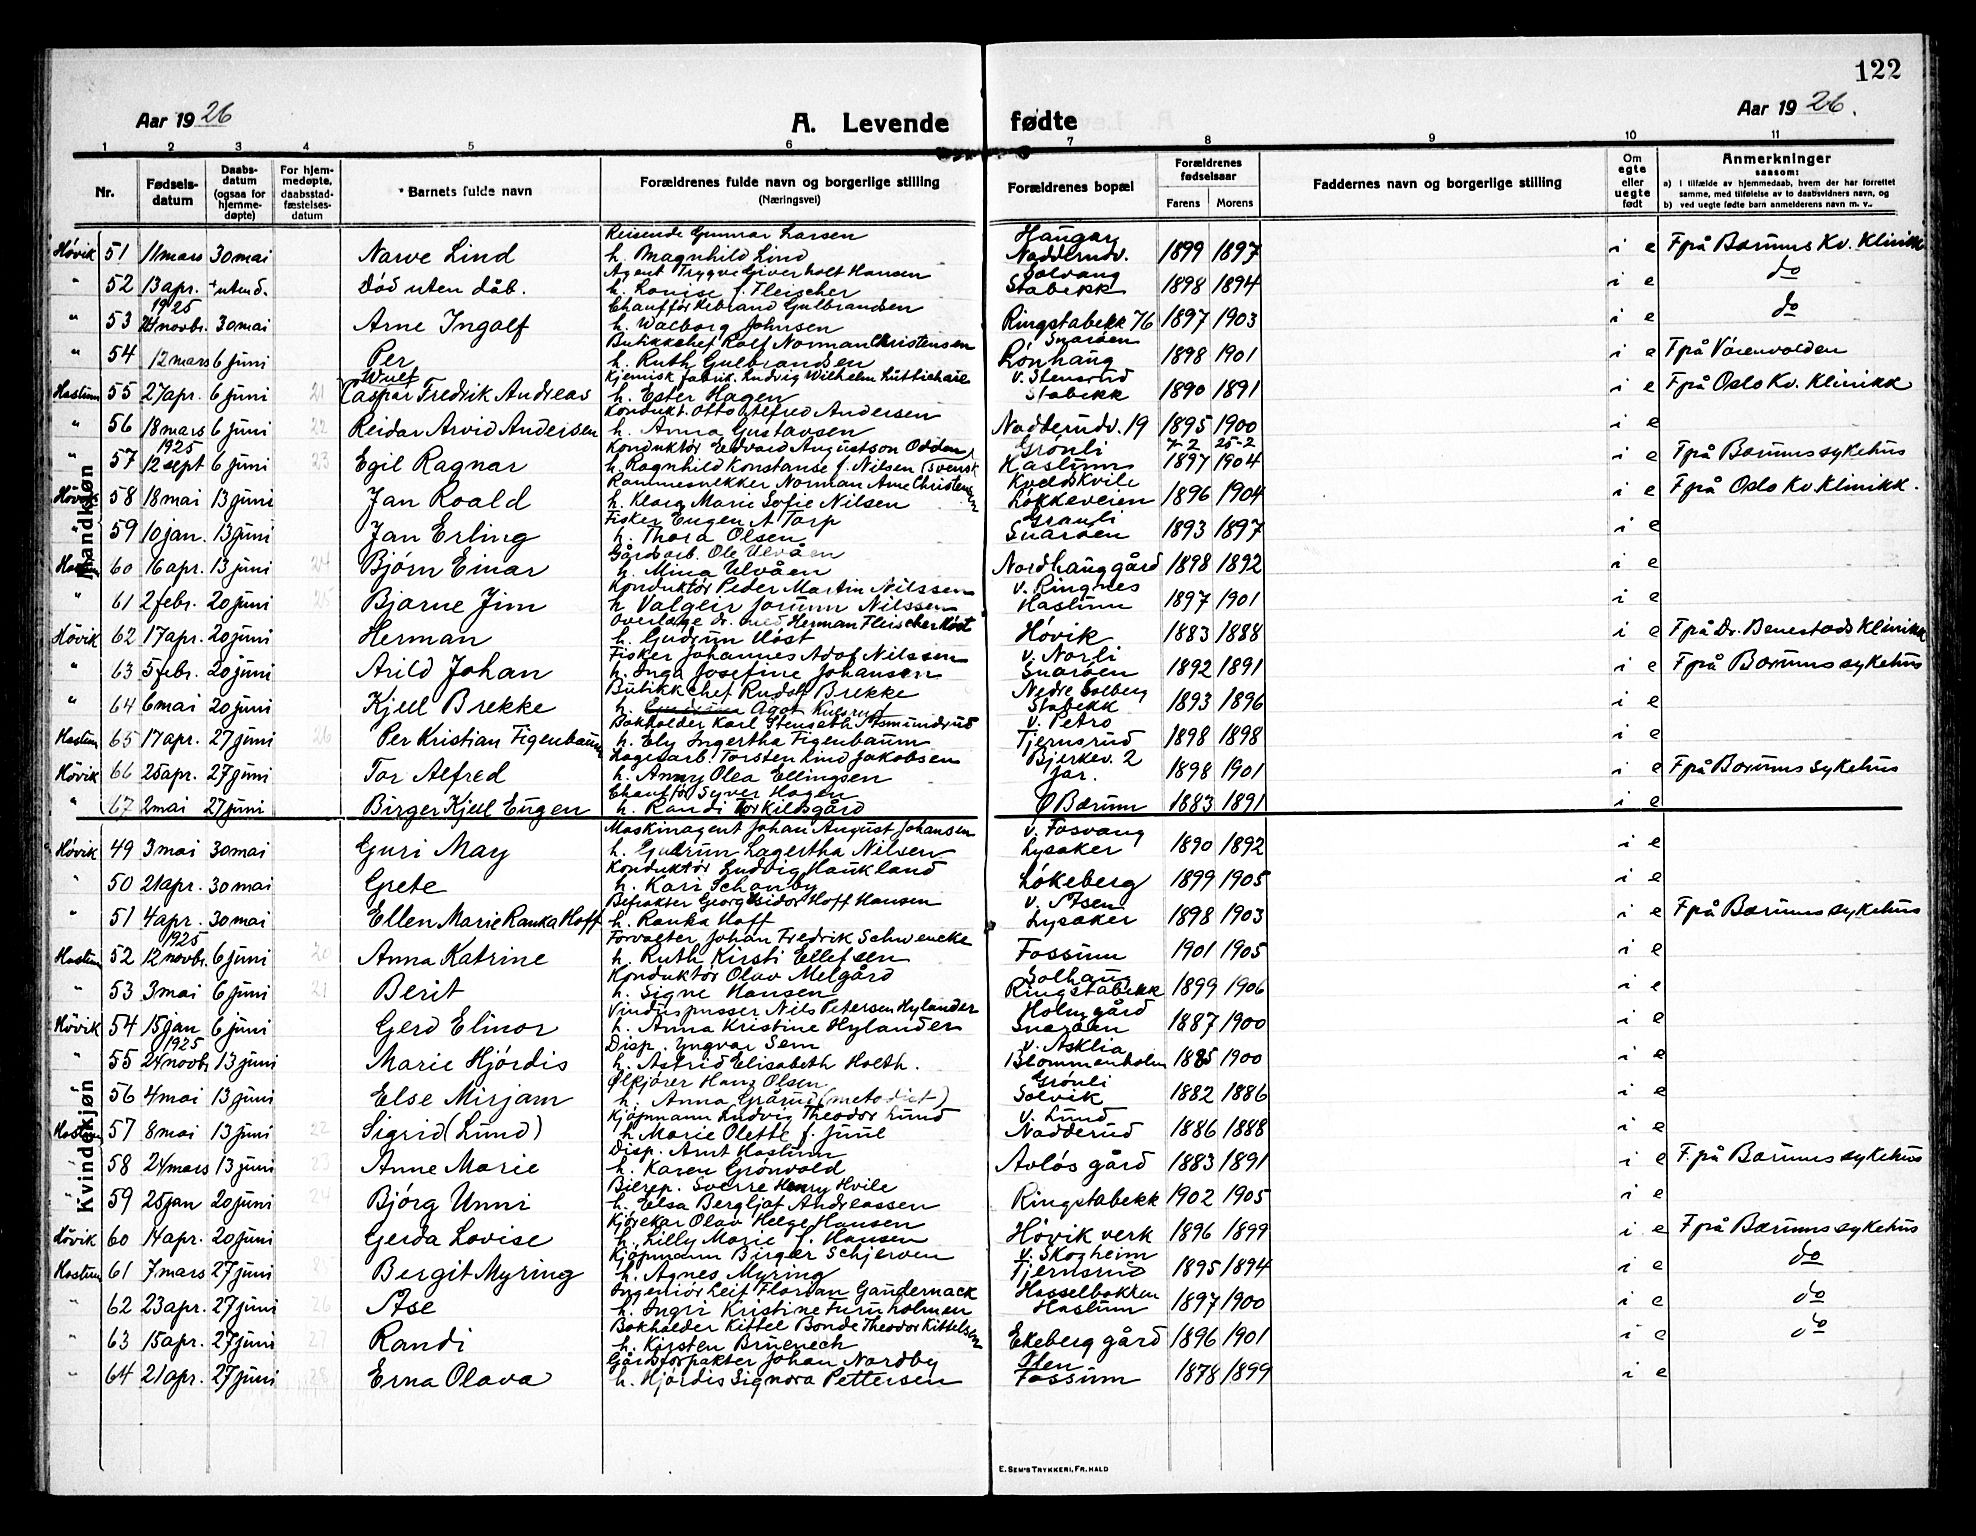 122
Aar 1926
A. Levende fødte
Aar 1926.
1 2 3 4 5 6 7 8 9 10 11
Nr.
Fødsels-datum
Daabs-datum (ogsaa for hjemme-døpte)
For hjem-medøpte, daabsstad-fæstelses-datum
Barnets fulde navn
Forældrenes fulde navn og borgerlige stilling
(Næringsvei)
Forældrenes bopæl
Forældrenes fødselsaar
Farens Morens
Faddernes navn og borgerlige stilling
Om egte eller uegte født
Anmerkninger
saasom:
a) I tilfælde av hjemmedaab, hvem der har forrettet samme, med tilføielse av to daabsvidners navn, og
b) ved uegte fødte barn anmelderens navn m. v.
Mandkjøn
Reisende Gunnar Larsen Haugar
Høvik 51 11 mars 30 mai Narve Lind h. Magnhild Lind Nadderudv. 1899 1897 i e F på Bærums Kv. Klinikk
Agent Trygve Giverholt Hansen Solvang
" 52 13 apr. + uten d. Død uten dåb. h. Louise f. Fleischer Stabekk 1898 1894 i e do
1925 Chauffør Hebrand Gulbrandsen
" 53 24 novbr. 30 mai Arne Ingolf h. Walborg Johnsen Ringstabekk 76 1897 1903 i e do
Butikkchef Rolf Norman Christensen Snarøen
" 54 12 mars 6 juni Per h. Ruth Gulbrandsen Lønhaug 1898 1901 i e
Wulf Kjemisk fabrik. Ludvig Wilhelm v. Stensrud
Haslum 55 27 apr. 6 juni 21 Caspar Fredrik Andreas h. Ester Hagen Stabekk 1890 1891 i e F på Oslo Kv. Klinikk
Kondukt. Otto Alfred Andersen
" 56 18 mars 6 juni 22 Reidar Arvid Andersen h. Anna Gustavsen Nadderudv. 19 1895 1900 i e
1925 Konduktør Edvard Augustson Odden Grønli 7-2 25-2
" 57 12 sept 6 juni 23 Egil Ragnar h. Ragnhild Konstanse f. Nilsen (svensk Haslum 1897 1904 i e F på Bærums sykehus
Rammesnekker Norman Arne Christensen Kveldskvile
Høvik 58 18 mai 13 juni Jan Roald h. Klara Marie Sofie Nilsen Løkkeveien 1896 1904 i e F på Oslo Kv Klinikk.
Fisker Eugen A Torp Granli
" 59 10 jan. 13 juni Jan Erling h. Thora Olsen Snarøen 1893 1897 i e
Gårdsarb. Ole Ulvåen
Haslum 60 16 apr. 13 juni 24 Bjørn Einar h. Mina Ulvåen Nordhaug gård 1898 1892 i e
Konduktør Peder Martin Nilssen v. Ringnes
" 61 2 febr. 20 juni 25 Bjarne Jim h Valgeir Jorunn Nilssen Haslum 1897 1901 i e
Overlæge dr. med Herman Fleischer Høst
Høvik 62 17 apr. 20 juni Herman h. Gudrun Høst Høvik 1883 1888 i e F på Dr. Benestads Klinikk
Fisker Johannes Adof Nilssen v. Norli
" 63 5 febr. 20 juni Arild Johan h. Inga Josefine Johansen Snarøen 1892 1891 i e F på Bærums sykehus
Butikkchef Rudolf Brekke Nedre Solberg
" 64 6 mai 20 juni Kjell Brekke h. Agot Kulsrud Stabekk 1893 1896 i e
Bokholder Karl Stenseth Asmundrud v. Petro
Haslum 65 17 apr. 27 juni 26 Per Kristian Figenbaum h. Ely Ingertha Figenbaum Tjernsrud 1898 1898 i e
Lagerarb. Torsten Lind Jakobsen Bjerkev. 2
Høvik 66 25 apr. 27 juni Tor Alfred h. Anny Olea Ellingsen Jar. 1898 1901 i e F på Bærums sykehus
Chauffør Syver Hagen
" 67 2 mai 27 juni Birger Kjell Eugen h. Randi Torkildsgård Ø Bærum 1883 1891 i e
Kvindekjøn
Maskinagent Johan August Johansen v. Fosvang
Høvik 49 3 mai 30 mai Guri May h. Gudrun Lagertha Nilsen Lysaker 1890 1892 i e
Konduktør Ludvig Haukland
" 50 21 apr. 30 mai Grete h. Kari Schanby Løkeberg 1899 1905 i e
Befrakter Georg Isidor Hoff Hansen v. Åsen
" 51 4 apr. 30 mai Ellen Marie Ranka Hoff h. Ranka Hoff Lysaker 1898 1903 i e F på Bærums sykehus
1925 Forvalter Johan Fredrik Schwencke
Haslum 52 12 novbr. 6 juni 20 Anna Katrine h. Ruth Kirsti Ellefsen Fossum 1901 1905 i e
Konduktør Olav Melgård Solhaug
" 53 3 mai 6 juni 21 Berit h. Signe Hansen Ringstabekk 1899 1906 i e
Vinduspusser Nils Petersen Hylander Holmgård
Høvik 54 15 jan 6 juni Gerd Elinor h. Anna Kristine Hylander Snarøen 1887 1900 i e
1925 Disp. Yngvar Sem v. Asklia
" 55 24 novbr 13 juni Marie Hjørdis h. Astrid Elisabeth Holth. Blommenholm 1885 1900 i e
Ølkjører Hans Olsen Grønli
" 56 4 mai 13 juni Else Mirjam h. Anna Grårud (metodist) Solvik 1882 1886 i e
Kjøpmann Ludvig Theodor Lund v. Lund
Haslum 57 8 mai 13 juni 22 Sigrid (Lund) h Marie Olette f. Juul Nadderud 1886 1888 i e
Disp. Arnt Haslum
" 58 24 mars 13 juni 23 Anne Marie h. Karen Grønvold Avløs gård 1883 1891 i e F. på Bærums sykehus
Bilrep. Sverre Henry Hvile
" 59 25 jan 20 juni 24 Bjørg Unni h. Elsa Bergljot Andreassen Ringstabekk 1902 1905 i e
Kjørekar Olav Helge Hansen
Høvik 60 14 apr. 20 juni Gerda Lovise h. Lilly Marie f. Hansen Høvik verk 1896 1899 i e F på Bærums sykehus
Kjøpmann Birger Schjerven v. Skogheim
Haslum 61 7 mars 27 juni Bergit Myring h. Agnes Myring Tjernsrud 1895 1894 i e do
Ingeniør Leif Florian Gaudernack Hasselbakken
" 62 23 apr. 27 juni 26 Åse h. Ingri Kristine Furuholmen Haslum 1897 1900 i e do
Bokholder Kittel Bonde Theodor Kittelsen
" 63 15 apr. 27 juni 27 Randi h. Kirsten Bruenech Ekeberg gård 1896 1901 i e do
Gårdsforpakter Johan Nordby Ølen
" 64 21 apr. 27 juni 28 Erna Olava h. Hjørdis Signora Pettersen Fossum 1878 1899 i e
E. SEM'S TRYKKERI, FR. HALD